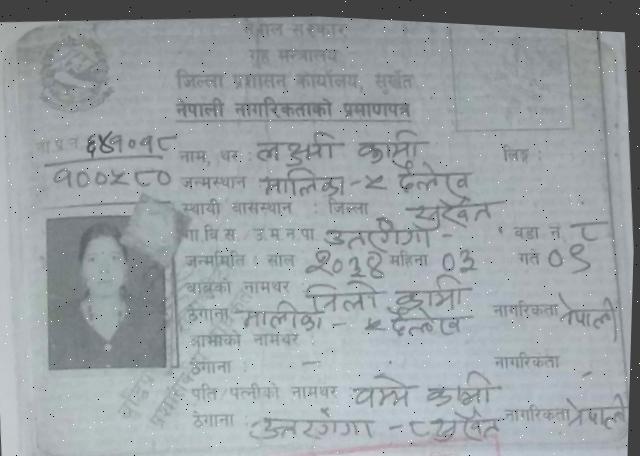 नेपाल सरकार
गृह मन्त्रालय
जिल्ला प्रशासन कार्यालय, सुर्खेत
नेपाली नागरिकताको प्रमाणपत्र
ना.प्र.नं. ६४१०१८
१००५८०
नाम, थर : लक्ष्मी कामी लिङ्ग :
जन्मस्थान मालिका-५ दैलेख
स्थायी बासस्थान : जिल्ला सुर्खेत
गा.वि.स./उ.म.न.पा उत्तरगंगा - वडा नं. ८
जन्ममिति : साल २०३४ महिना ०३ गते ०९
बाबुको नामथर कामी
ठेगाना मालीका - ५ दैलेख नागरिकता नेपाली
आमाको नामथर
ठेगाना : - नागरिकता
पति/पत्नीको नामथर कामी
ठेगाना : उत्तरगंगा - ८ सुर्खेत नागरिकता नेपाली